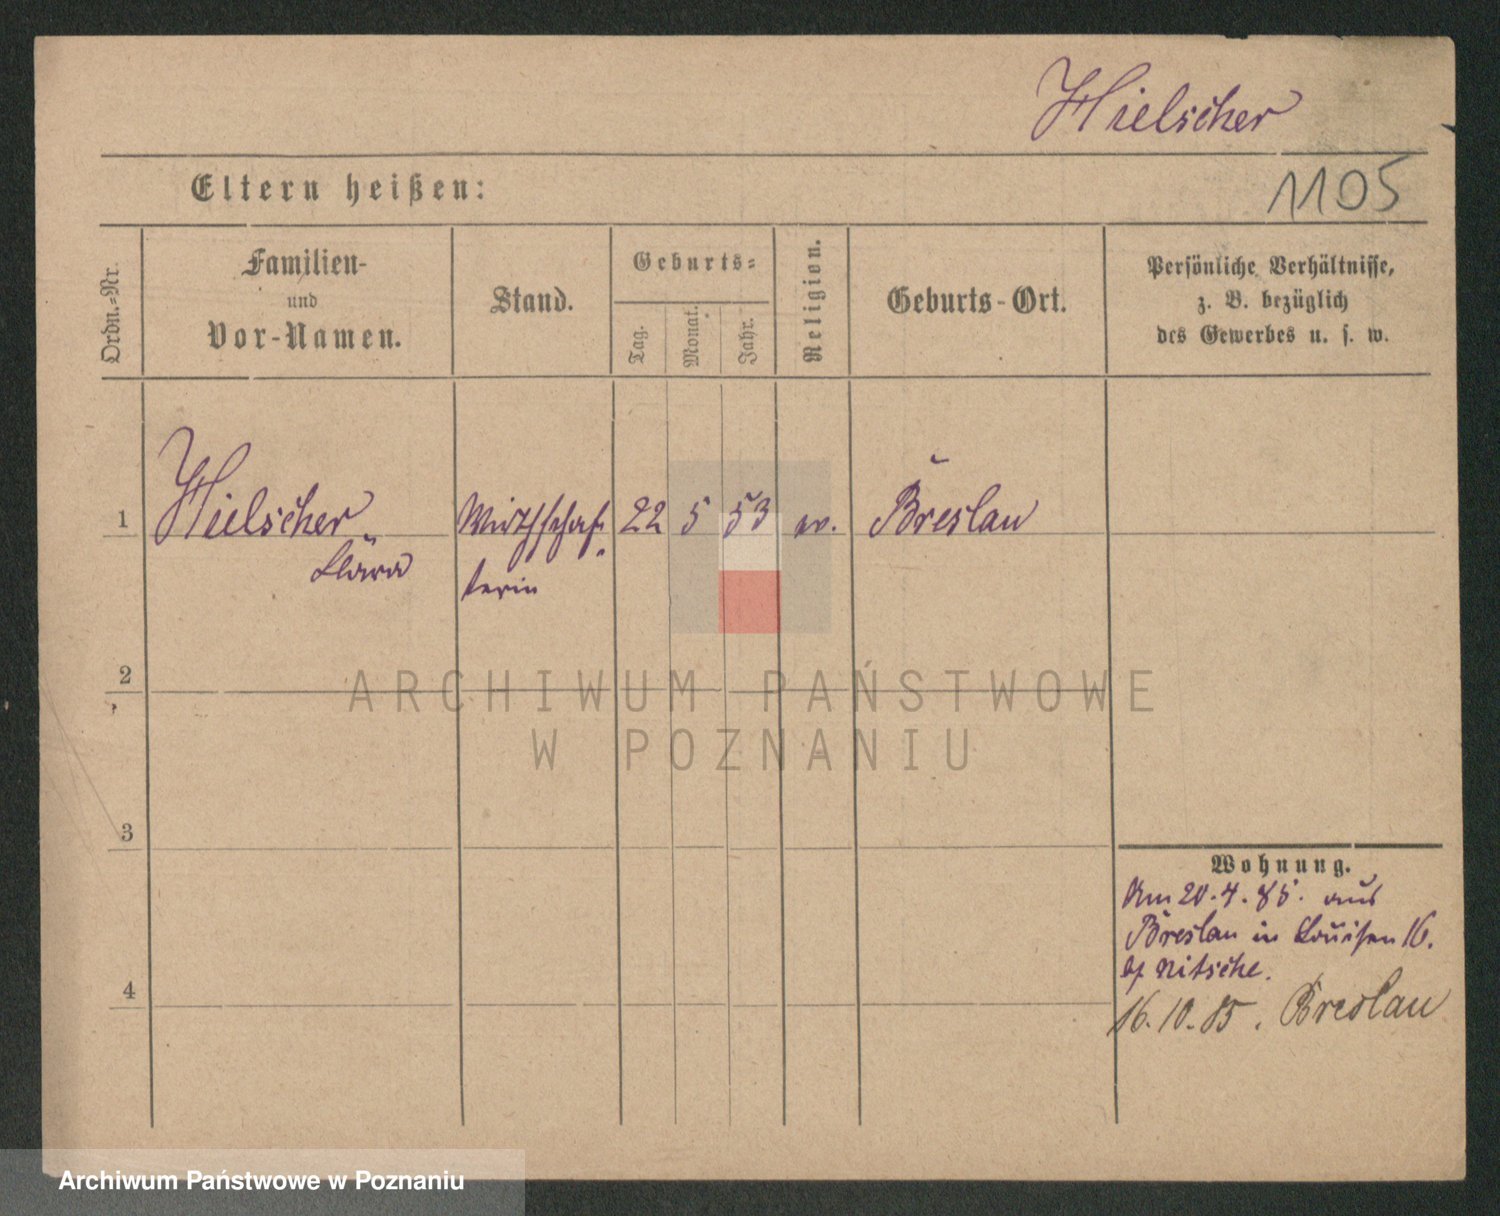 Hielscher
Eltern heißen:
1105
Ordn.-Nr.
Familien-
und
Vor-Namen.
Stand.
Geburts-
Tag.
Monat.
Jahr.
Religion.
Geburts-Ort.
Persönliche Verhältnisse,
z. B. bezüglich
des Gewerbes u. s. w.
1 Hielscher Wirthschaf- 22 5 53 ev. Breslau
Clara terin
2
ARCHIWUM PAŃSTWOWE
W POZNANIU
3
Wohnung.
Am 20.4.85. aus
Breslau in Louisen 16.
Nitsche.
4
16.10.85. Breslau
Archiwum Państwowe w Poznaniu